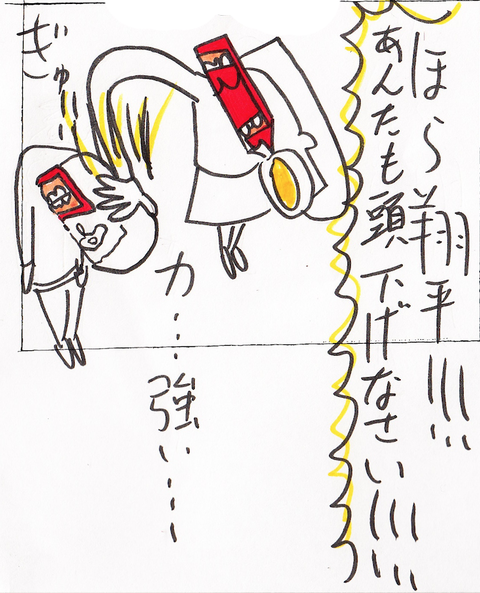 ほら翔平!!!
あんたも頭下げなさい!!!
力…強い…
ぎゅー